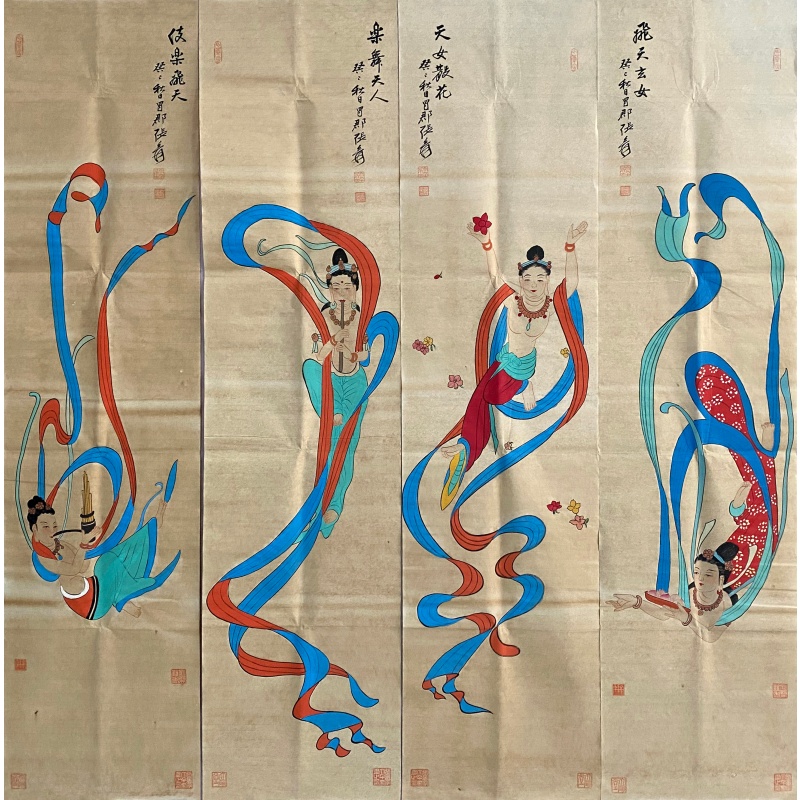 飛天玄女
癸巳秋日蜀郡張爰
天女散花
癸巳秋日蜀郡張爰
楽舞天人
癸巳秋日蜀郡張爰
伎楽飛天
癸巳秋日蜀郡張爰